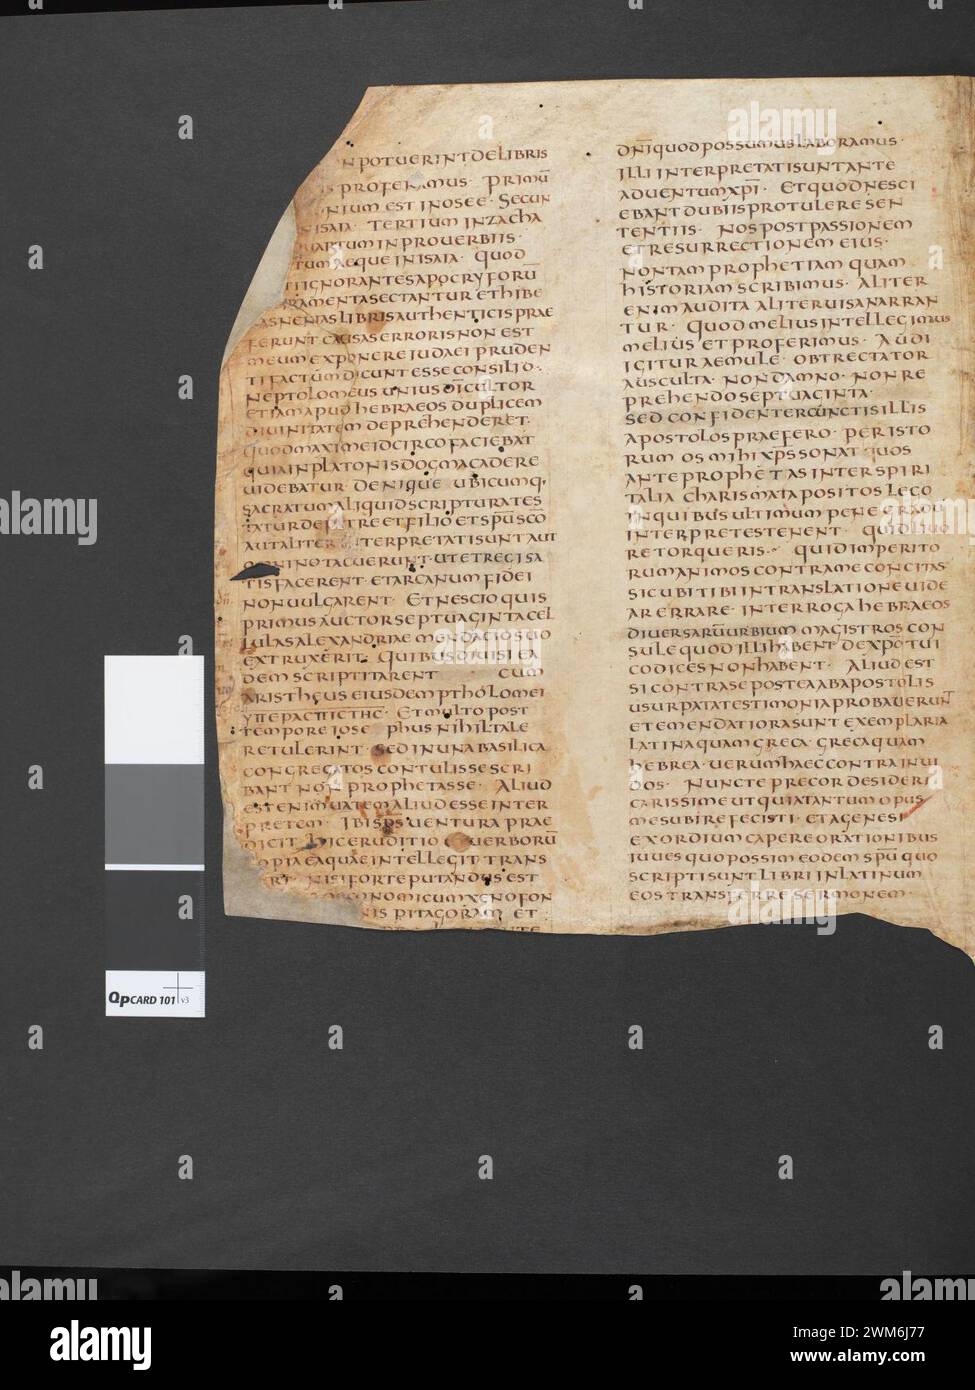 N POTUERINT DE LIBRIS
S PROFERAMUS · PRIMŪ
NIUM EST IN OSEE · SECUN
N ISAIA · TERTIUM IN ZACHA
UARTUM IN PROUERBIIS ·
TUM AEQUE IN ISAIA · QUOD
I IGNORANTES APOCRYFORŪ
RAMENTA SECTANTUR ET HIBE
RAS NENIAS LIBRIS AUTHENTICIS PRAE
FERUNT CAUSAS ERRORIS NON EST
MEUM EXPONERE IUDAEI PRUDEN
TI FACTŪM DICUNT ESSE CONSILIO ·
NE PTOLOMEUS UNIUS DĪ CULTOR
ETIAM APUD HEBRAEOS DUPLICEM
DIUINITATEM DEPREHENDERET ·
QUOD MAXIME IDCIRCO FACIEBAT
QUIA IN PLATONIS DOGMA CADERE
UIDEBATUR · DENIQUE UBICUMQ·
SACRATUM ALIQUID SCRIPTURA TES
TATUR DE PATRE ET FILIO ET SPŪ SCŌ
AUT ALITER INTERPRETATI SUNT AUT
OMNINO TACUERUNT · UT ET REGI SA
TIS FACERENT · ET ARCANUM FIDEI
NON UULGARENT · ET NESCIO QUIS
PRIMUS AUCTOR SEPTUAGINTA CEL
LULAS ALEXANDRIAE MENDACIO SUO
EXTRUXERIT · QUIBUS DIUISI EA
DEM SCRIPTITARENT CUM
ARISTHEUS EIUSDEM PTHOLOMEI
ΥΠΕΡΑCΠΙCΤΗC · ET MULTO POST
TEMPORE IOSEPHUS NIHIL TALE
RETULERINT · SED IN UNA BASILICA
CONGREGATOS CONTULISSE SCRI
BANT NON PROPHETASSE · ALIUD
EST ENIM UATEM ALIUD ESSE INTER
PRETEM · IBI SPS UENTURA PRAE
DICIT · HIC ERUDITIO ET UERBORŪ
OPIA EA QUAE INTELLEGIT TRANS
RT · NISI FORTE PUTANDUS EST
OECONOMICUM XENOFON
NIS PITAGORAM ET
DNĪ QUOD POSSUMUS LABORAMUS ·
ILLI INTERPRETATI SUNT ANTE
ADUENTUM XPĪ · ET QUOD NESCI
EBANT DUBIIS PROTULERE SEN
TENTIIS · NOS POST PASSIONEM
ET RESURRECTIONEM EIUS ·
NON TAM PROPHETIAM QUAM
HISTORIAM SCRIBIMUS · ALITER
ENIM AUDITA ALITER UISA NARRAN
TUR · QUOD MELIUS INTELLEGIMUS
MELIUS ET PROFERIMUS · AUDI
IGITUR AEMULE · OBTRECTATOR
AUSCULTA · NON DAMNO · NON RE
PREHENDO SEPTUAGINTA ·
SED CONFIDENTER CUNCTIS ILLIS
APOSTOLOS PRAEFERO · PER ISTO
RUM OS MIHI XPS SONAT QUOS
ANTE PROPHETAS INTER SPIRI
TALIA CHARISMATA POSITOS LEGO
IN QUIBUS ULTIMUM PENE GRADU
INTERPRETES TENENT · QUID LIUO
RE TORQUERIS · QUID IMPERITO
RUM ANIMOS CONTRA ME CONCITAS
SICUBI TIBI IN TRANSLATIONE UIDE
AR ERRARE · INTERROGA HEBRAEOS
DIUERSARŪ URBIUM MAGISTROS CON
SULE QUOD ILLI HABENT DE XPO TUI
CODICES NON HABENT · ALIUD EST
SI CONTRA SE POSTEA AB APOSTOLIS
USURPATA TESTIMONIA PROBAUERUNT
ET EMENDATIORA SUNT EXEMPLARIA
LATINA QUAM GRECA · GRECA QUAM
HEBREA · UERUM HAEC CONTRA INUI
DOS · NUNC TE PRECOR DESIDERI
CARISSIME UT QUIA TANTUM OPUS
ME SUBIRE FECISTI · ET A GENESI
EXORDIUM CAPERE ORATIONIBUS
IUUES QUO POSSIM EODEM SPŪ QUO
SCRIPTI SUNT LIBRI IN LATINUM
EOS TRANSFERRE SERMONEM ·
QPCARD 101 v3
alamy
Image ID: 2WM6J77
www.alamy.com